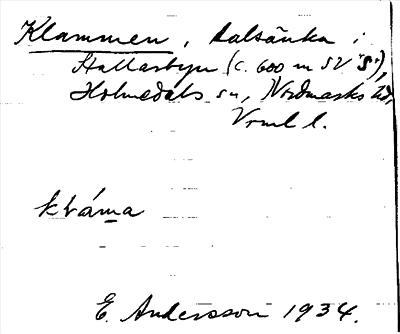 Klammen, dalsänka i
Hallastyn (c. 600 m SV "S"),
Holmedals sn, Nordmarks hd,
Vrml l.
kláma
E. Andersson 1934.